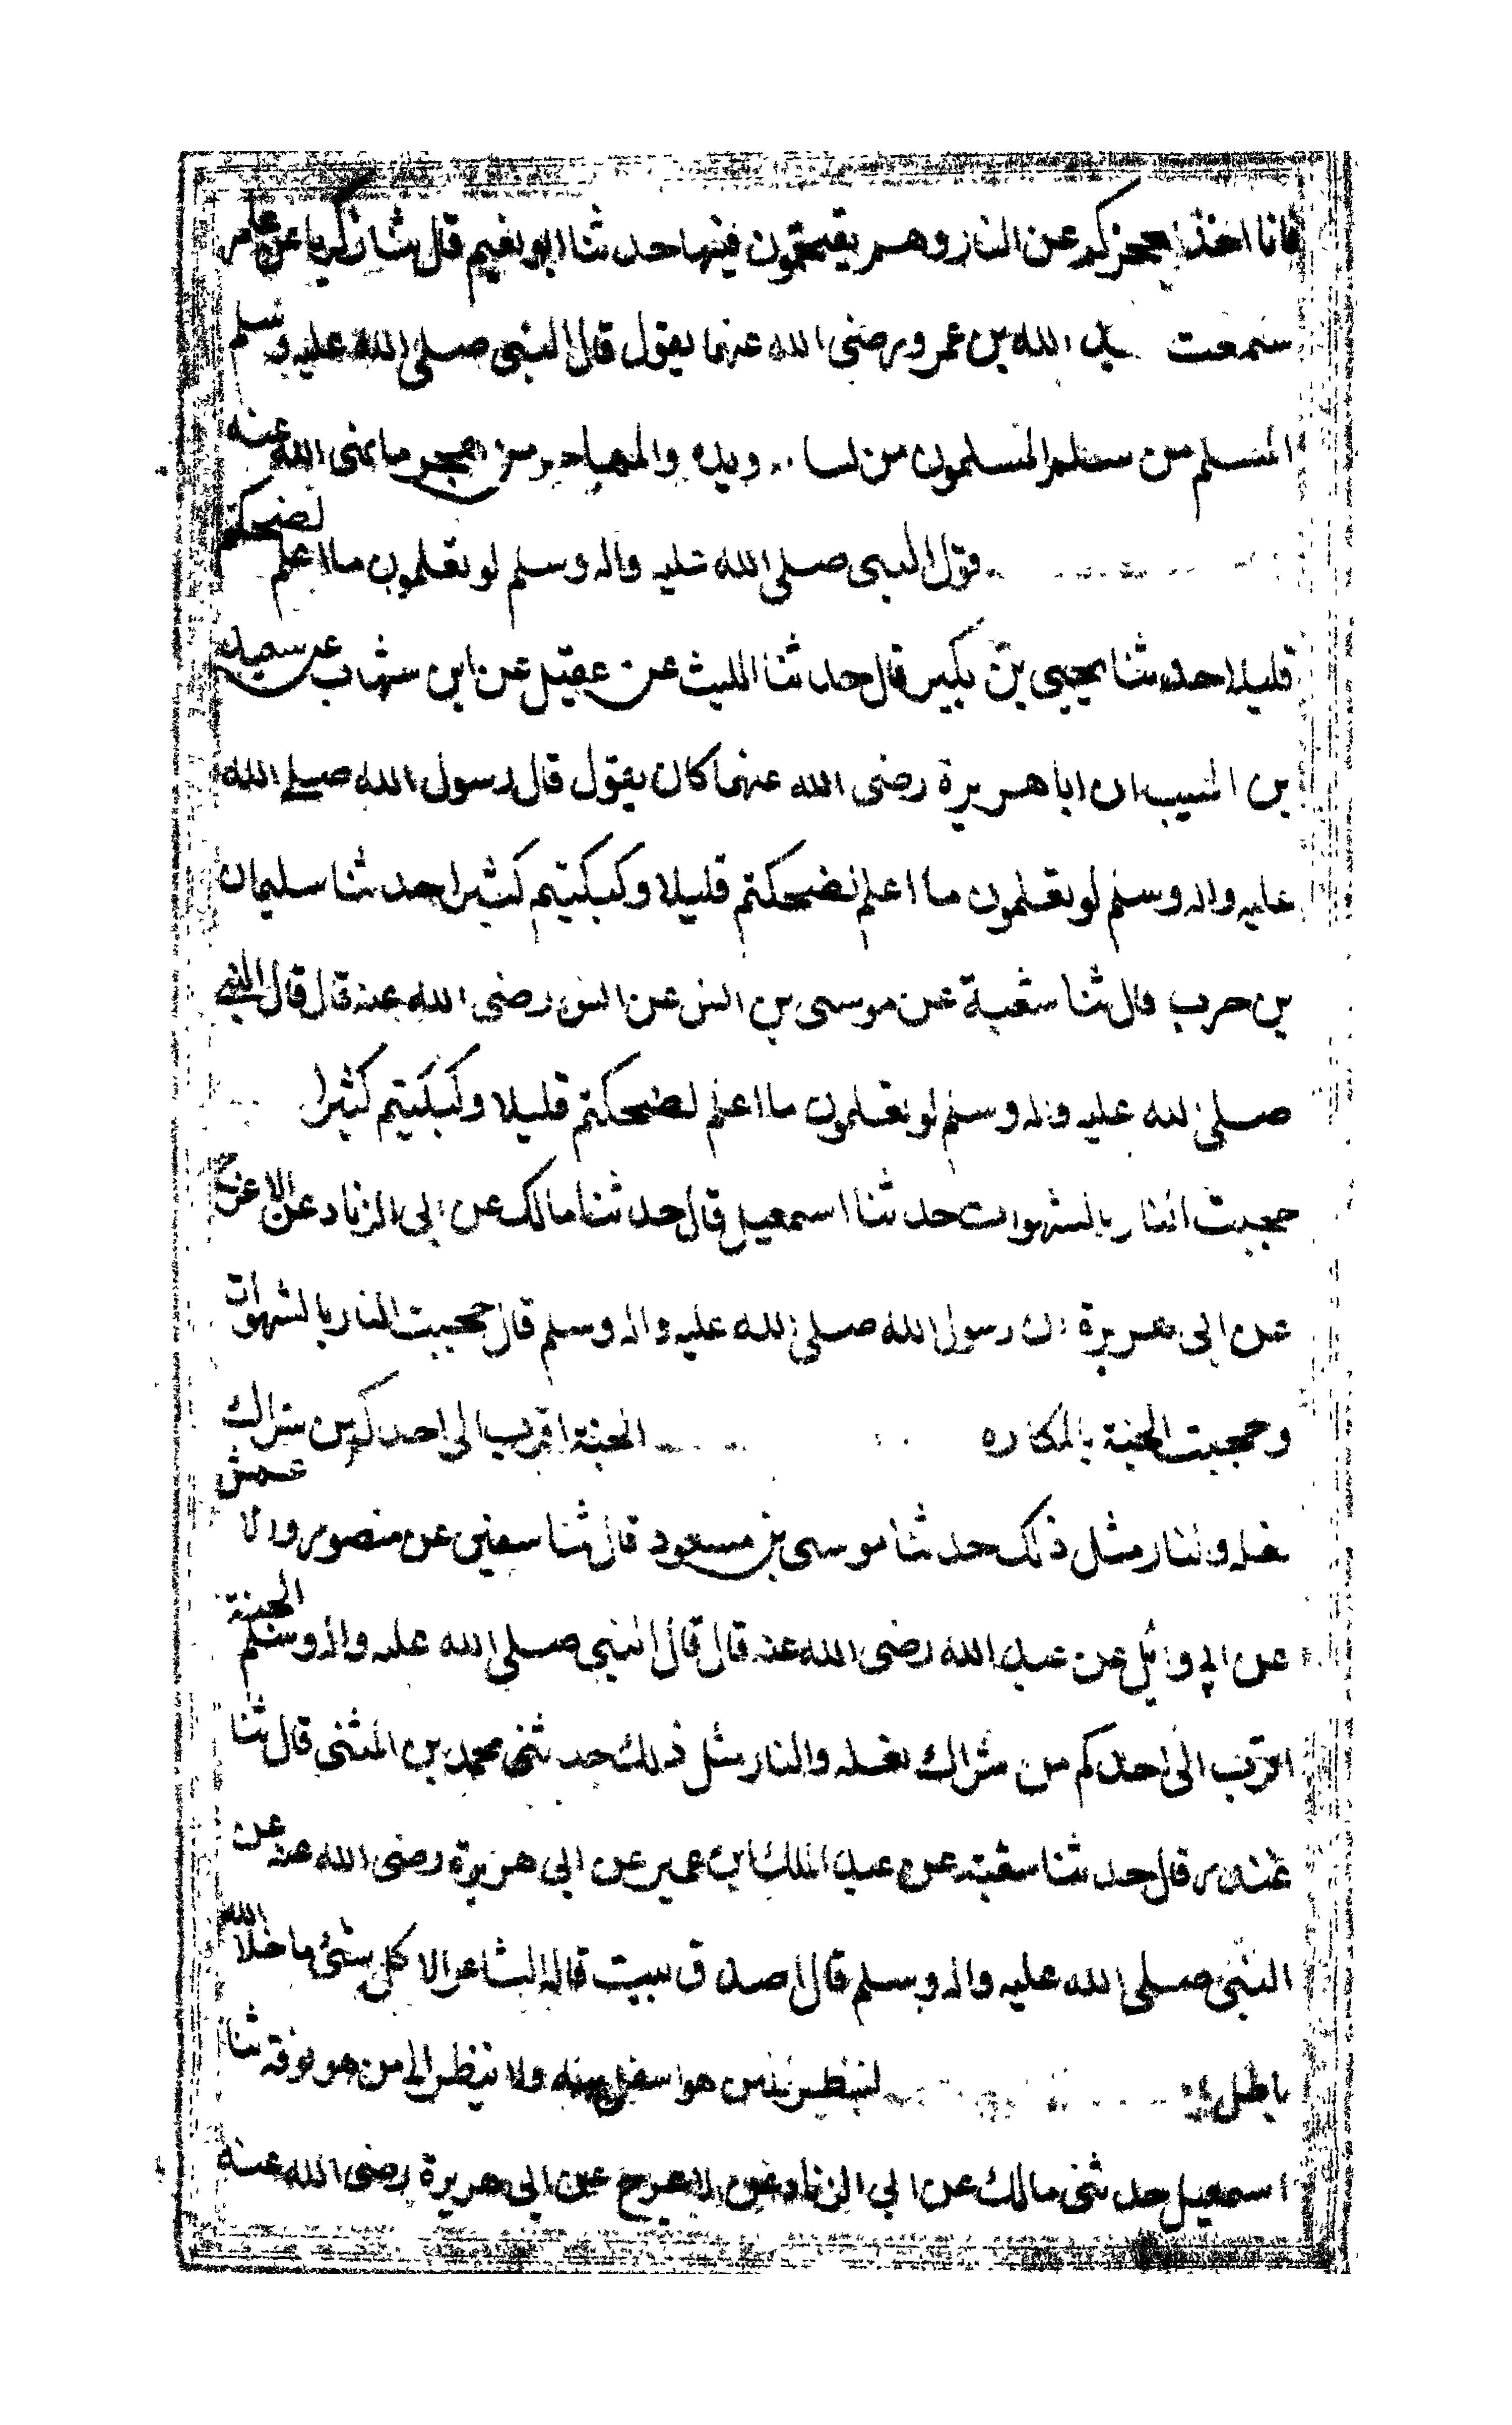 فانا اخذ بحجزكم عن النار وهم يقتحمون فيها حدثنا ابو نعيم قال ثنا زكريا عن عامر
سمعت عبد الله بن عمرو رضى الله عنهما يقول قال النبى صلى الله عليه وسلم
المسلم من سلم المسلمون من لسانه ويده والمهاجر من هجر ما نهى الله عنه
قول النبى صلى الله عليه واله وسلم لو تعلمون ما اعلم لضحكتم
قليلا حدثنا يحيى بن بكير قال حدثنا الليث عن عقيل عن ابن شهاب عن سعيد
بن المسيب ان ابا هريرة رضى الله عنهما كان يقول قال رسول الله صلى الله
عليه واله وسلم لو تعلمون ما اعلم لضحكتم قليلا ولبكيتم كثيرا حدثنا سليمان
بن حرب قال ثنا شعبة عن موسى بن انس عن انس رضى الله عنه قال قال النبى
صلى الله عليه واله وسلم لو تعلمون ما اعلم لضحكتم قليلا ولبكيتم كثيرا
حجبت النار بالشهوات حدثنا اسمعيل قال حدثنا مالك عن ابى الزناد عن الاعرج
عن ابى هريرة ان رسول الله صلى الله عليه واله وسلم قال حجبت النار بالشهوات
وحجبت الجنة بالمكاره الجنة اقرب الى احدكم من شراك
نعله والنار مثل ذلك حدثنا موسى بن مسعود قال ثنا سفين عن منصور والاعمش
عن ابى وائل عن عبد الله رضى الله عنه قال قال النبى صلى الله عليه واله وسلم الجنة
اقرب الى احدكم من شراك نعله والنار مثل ذلك حدثنى محمد بن المثنى قال ثنا
غندر قال حدثنا شعبة عن عبد الملك ابن عمير عن ابى هريرة رضى الله عنه عن
النبى صلى الله عليه واله وسلم قال اصدق بيت قاله الشاعر الا كل شئ ما خلا الله
باطل لينظر من هو اسفل منه ولا ينظر الى من هو فوقه ثنا
اسمعيل حدثنى مالك عن ابى الزناد عن الاعرج عن ابى هريرة رضى الله عنه